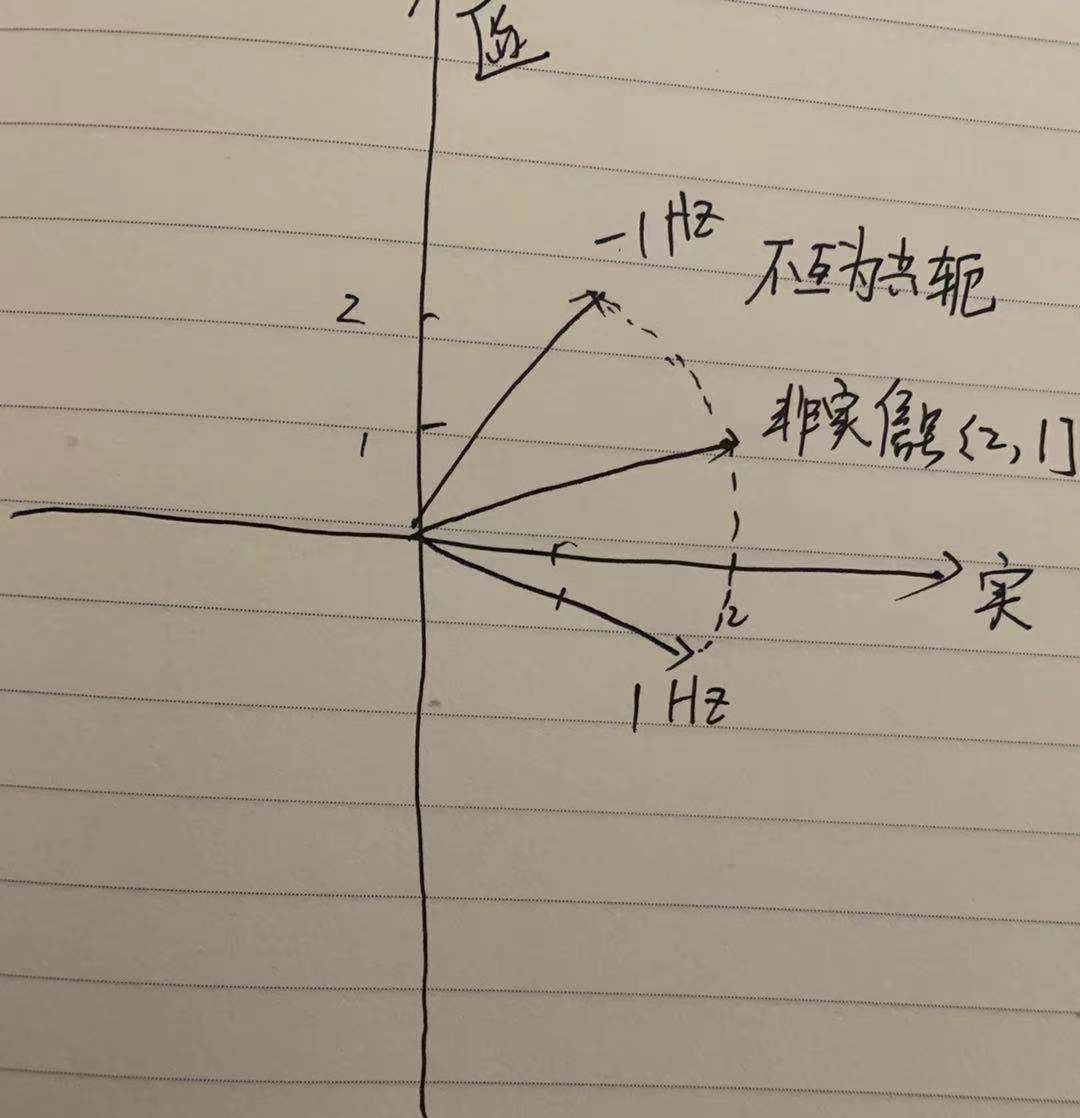 -1 Hz
不互为共轭
2
1
非实信号(2, 1]
实
1 Hz